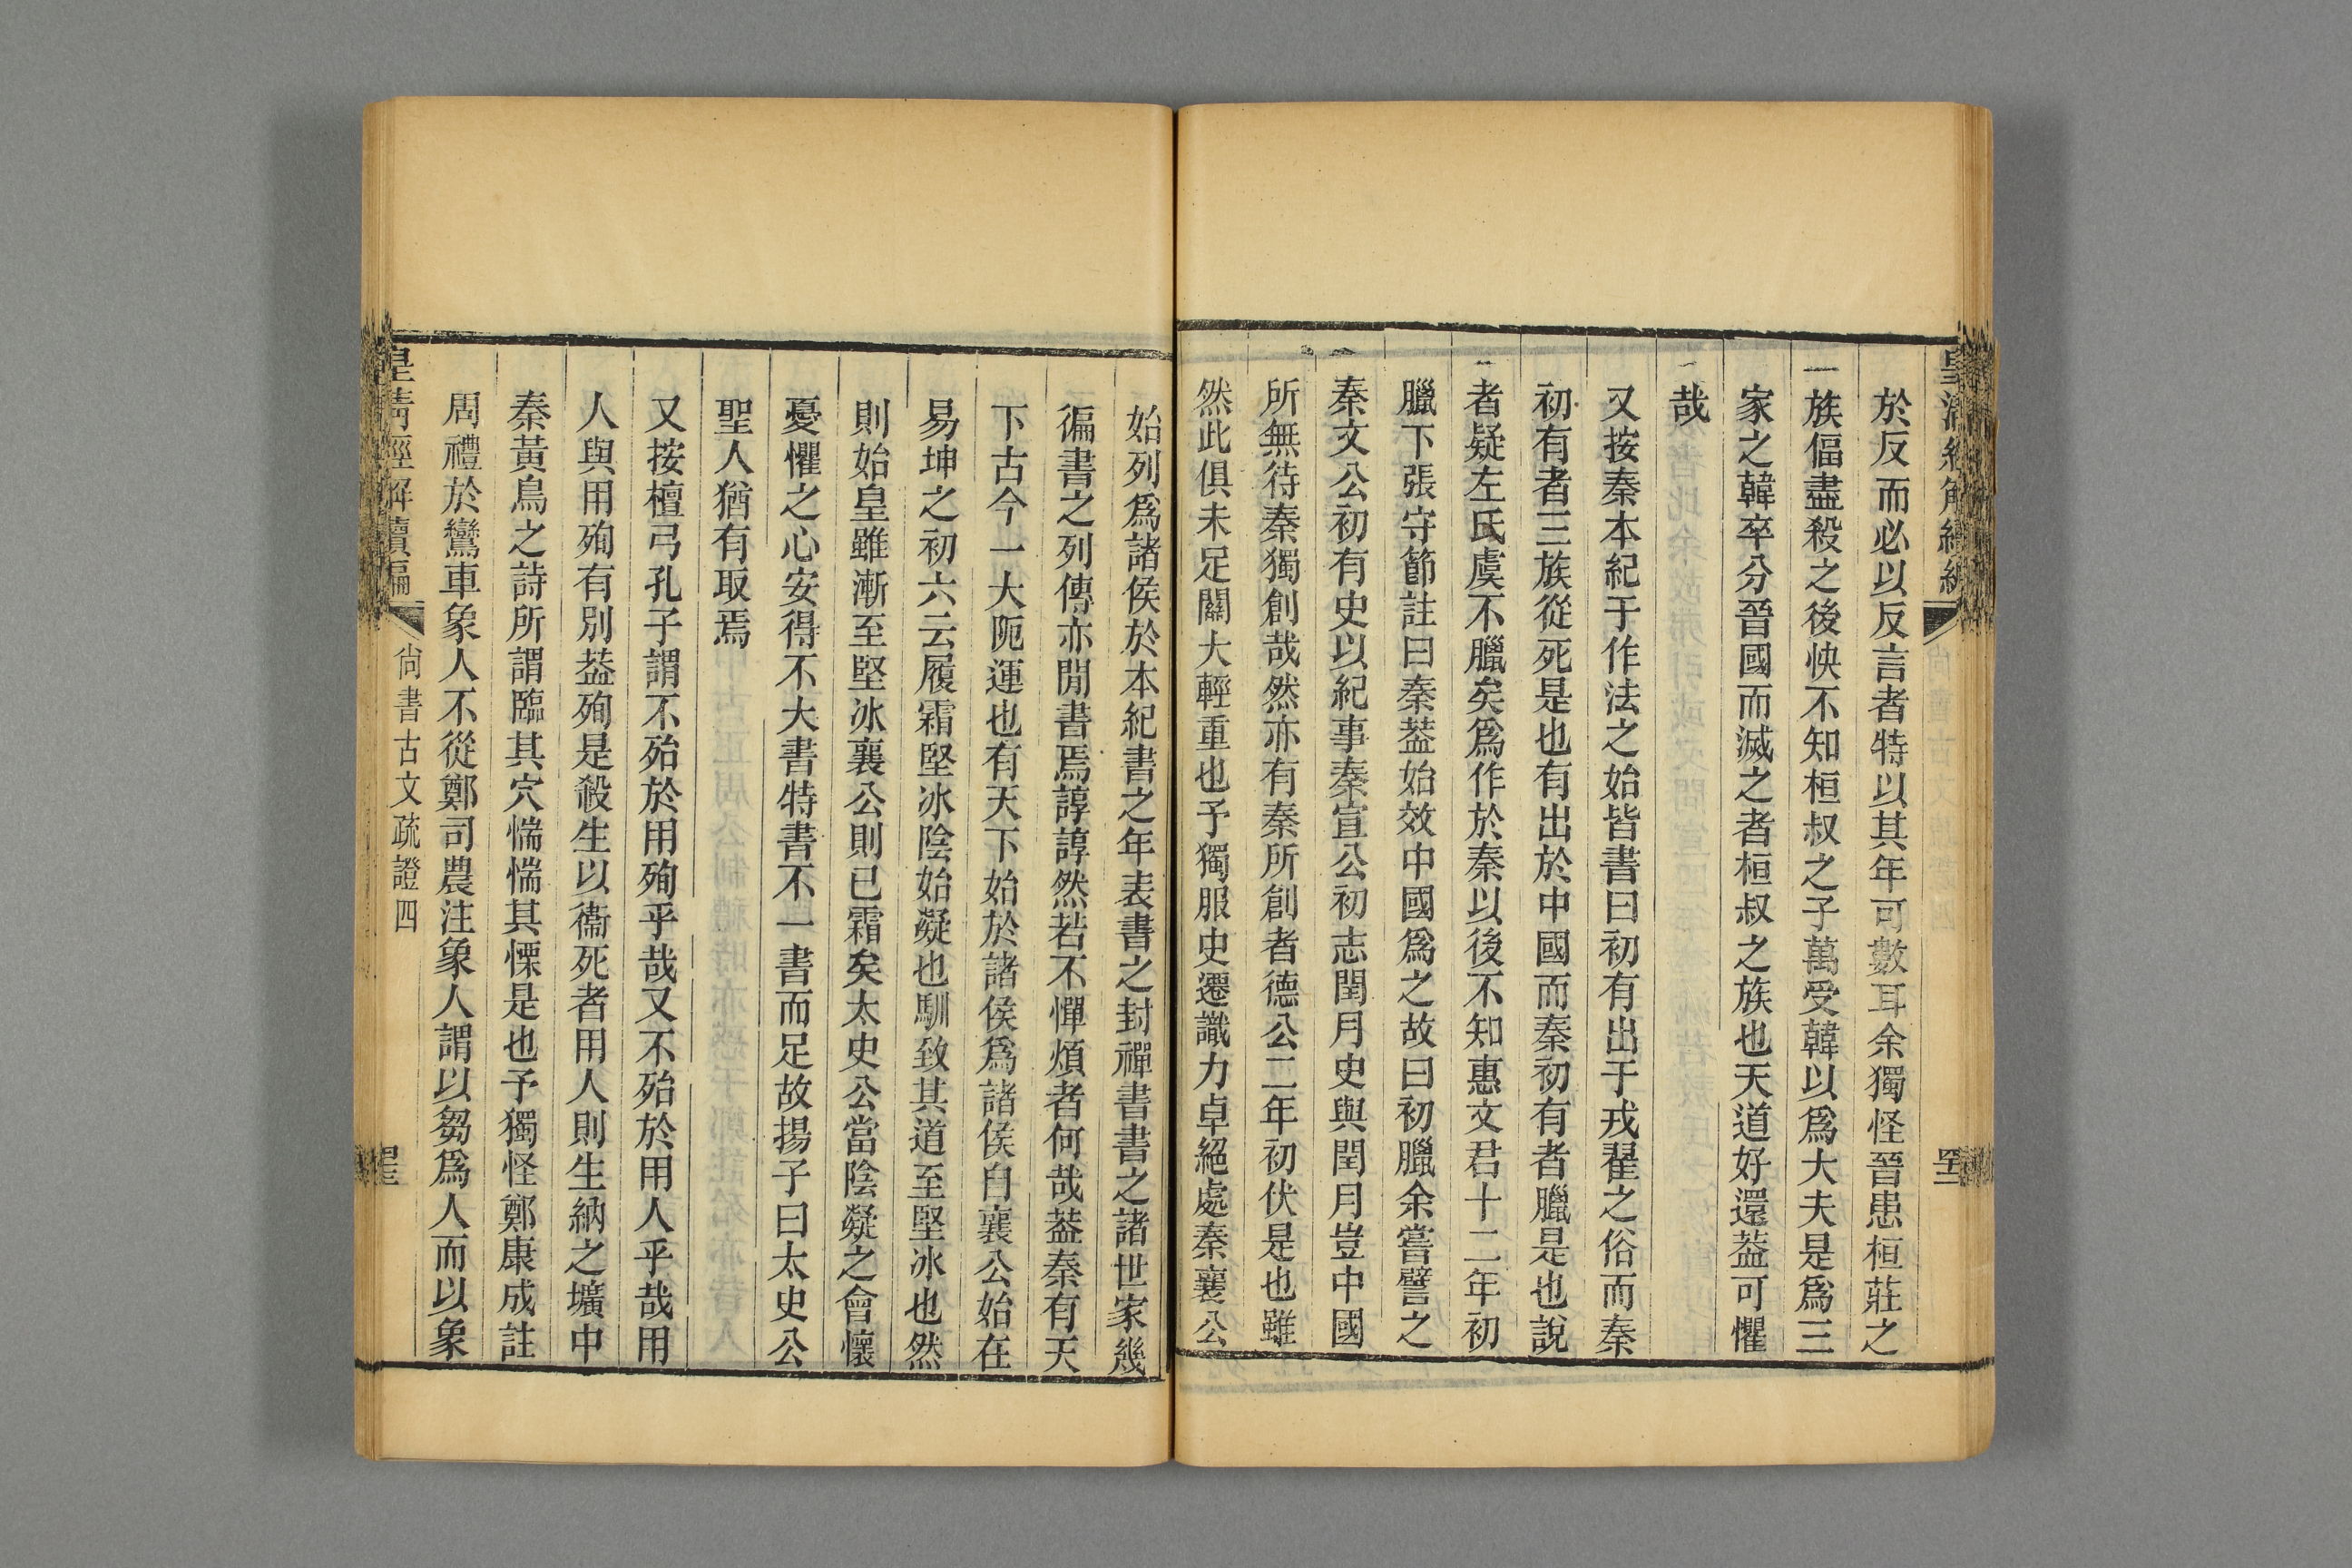 於反而必以反言者特以其年可數耳余獨怪晉患桓莊之
一族偪盡殺之後怏不知桓叔之子萬受韓以爲大夫是爲三
家之韓卒分晉國而滅之者桓叔之族也天道好還葢可懼
哉
又按秦本紀于作法之始皆書曰初有出于戎翟之俗而秦
初有者三族從死是也有出於中國而秦初有者臘是也說
者疑左氏虞不臘矣爲作於秦以後不知惠文君十二年初
臘下張守節註曰秦葢始效中國爲之故曰初臘余嘗譬之
秦文公初有史以紀事秦宣公初志閏月史與閏月豈中國
所無待秦獨創哉然亦有秦所創者德公二年初伏是也雖
然此俱未足關大輕重也予獨服史遷識力卓絕處秦襄公
始列爲諸侯於本紀書之年表書之封禪書書之諸世家幾
徧書之列傳亦閒書焉諄諄然若不憚煩者何哉葢秦有天
下古今一大阨運也有天下始於諸侯爲諸侯自襄公始在
易坤之初六云履霜堅冰陰始凝也馴致其道至堅冰也然
則始皇雖漸至堅冰襄公則已霜矣太史公當陰凝之會懷
憂懼之心安得不大書特書不一書而足故揚子曰太史公
聖人猶有取焉
又按檀弓孔子謂不殆於用殉乎哉又不殆於用人乎哉用
人與用殉有別葢殉是殺生以衞死者用人則生納之壙中
秦黃鳥之詩所謂臨其穴惴惴其慄是也予獨怪鄭康成註
周禮於鸞車象人不從鄭司農注象人謂以芻爲人而以象
皇清經解續編
尙書古文疏證四